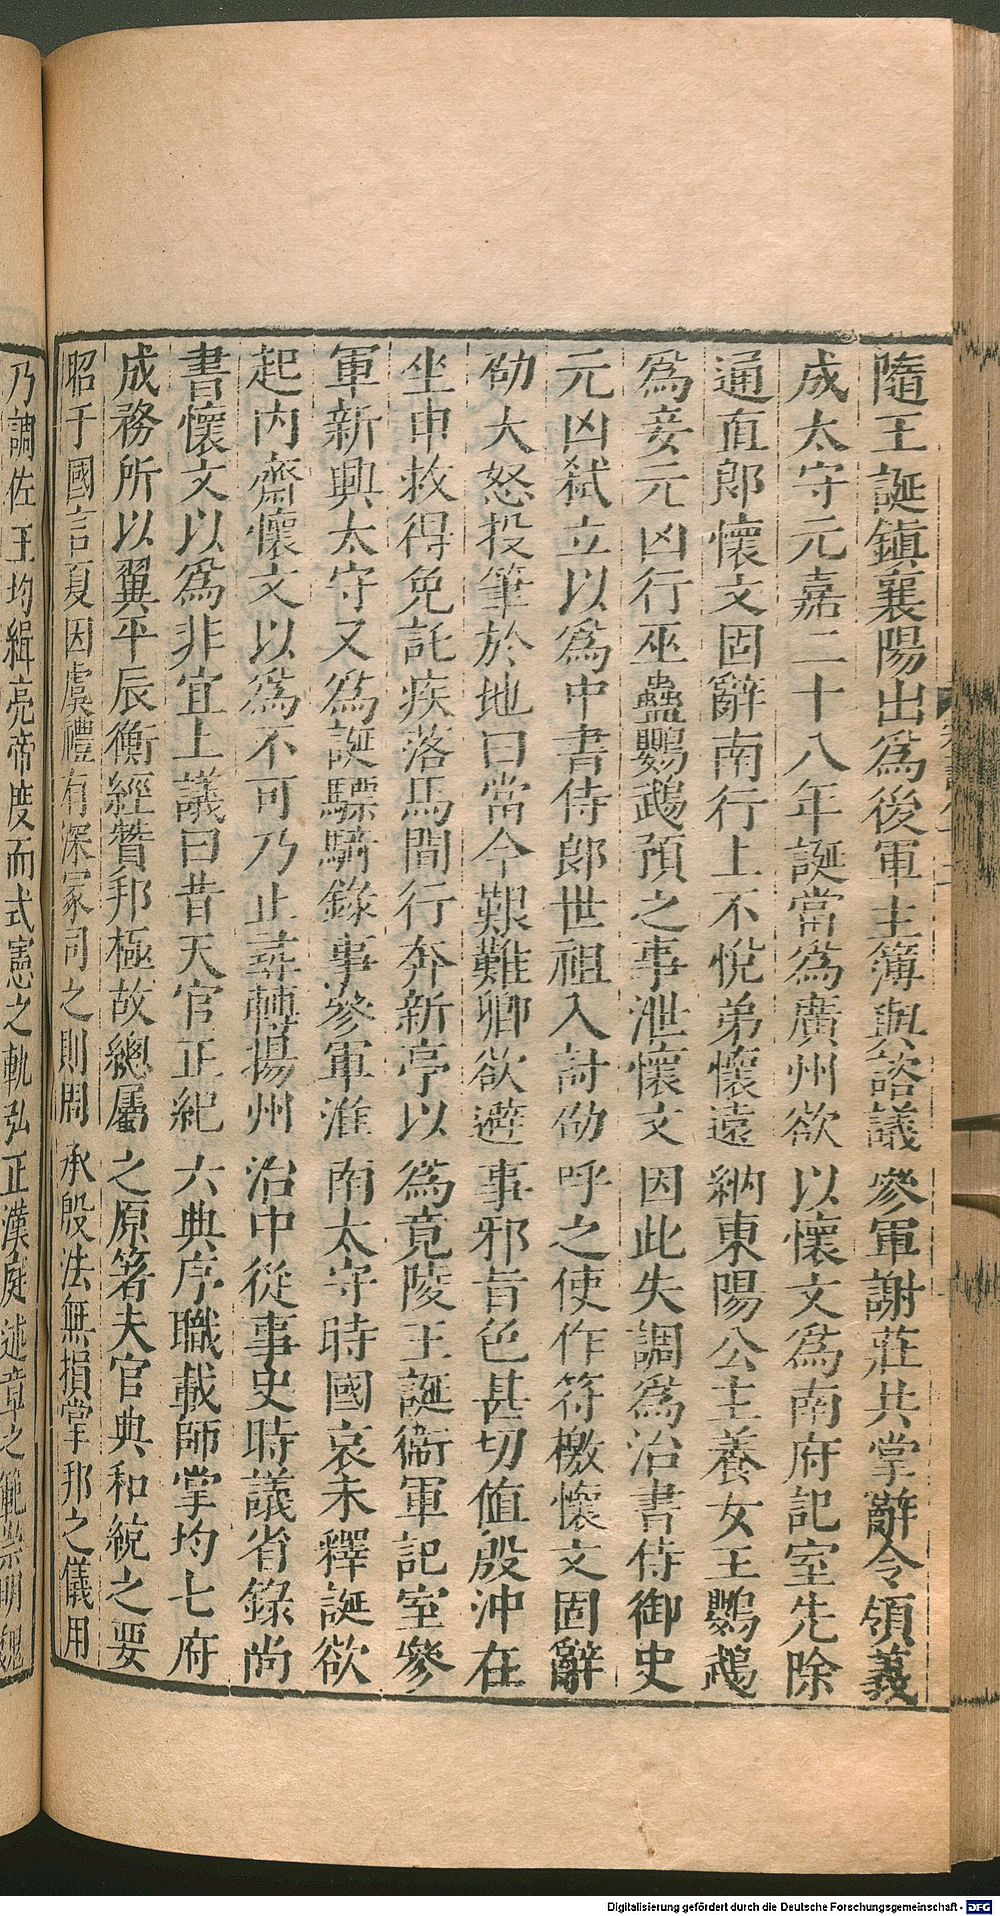 隨王誕鎮襄陽出為後軍主簿與諮議參軍謝莊共掌辭令領義
成太守元嘉二十八年誕當為廣州欲以懷文為南府記室先除
通直郎懷文固辭南行上不悅弟懷遠納東陽公主養女王鸚鵡
為妾元凶行巫蠱鸚鵡預之事泄懷文因此失調為治書侍御史
元凶弒立以為中書侍郎世祖入討劭呼之使作符檄懷文固辭
劭大怒投筆於地曰當今艱難卿欲避事邪旨色甚切值殷沖在
坐申救得免託疾落馬間行奔新亭以為竟陵王誕衛軍記室參
軍新興太守又為誕驃騎錄事參軍淮南太守時國哀未釋誕欲
起内齋懷文以為不可乃止尋轉揚州治中從事史時議省錄尚
書懷文以為非宜上議曰昔天官正紀六典序職載師掌均七府
成務所以翼平辰衡經贊邦極故總屬之原著夫官典和統之要
昭于國言夏因虞禮有深冢司之則周承殷法無損掌邦之儀用
乃調佐王均緝亮帝度而式憲之軌弘正漢庭述章之範崇明魏
Digitalisierung gefördert durch die Deutsche Forschungsgemeinschaft - DFG